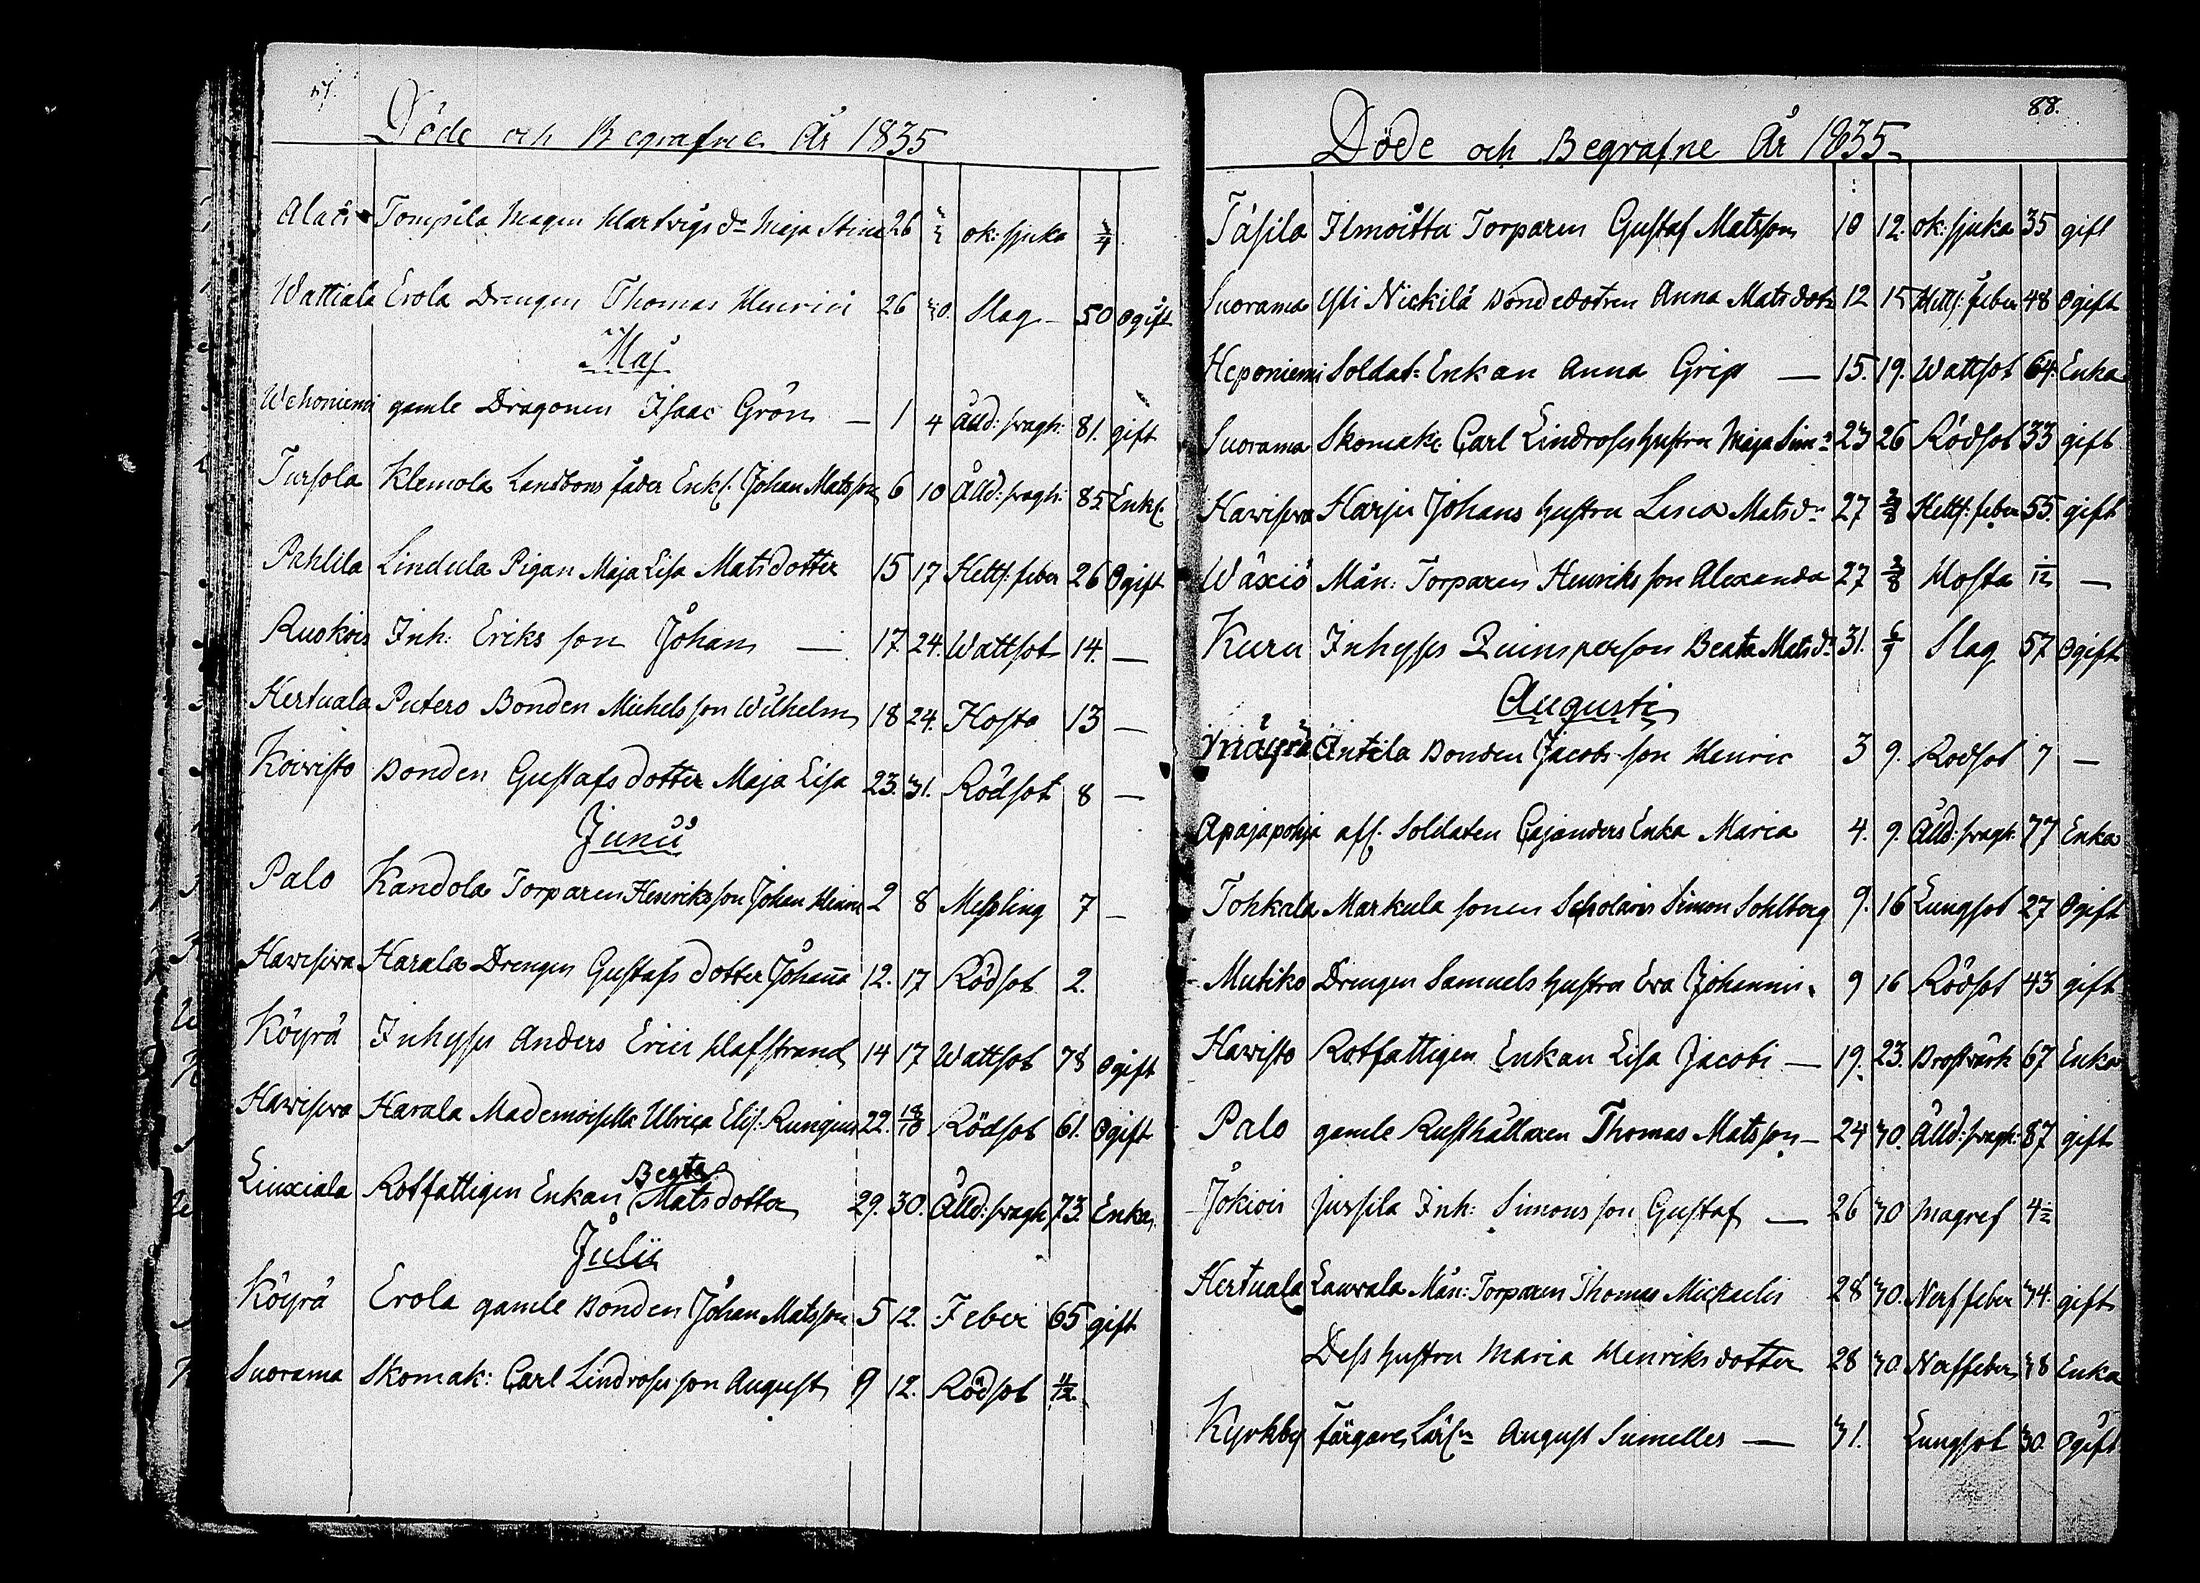 Döde och Begrafne År 1835
Tompila Magen Hartvigs dr Maja Stina 26 ok: sjuka
Wattiala Erola Drengen Thomas Henrici 26 30. Slag - 50 Ogift
Maj
Wehoniemi gamle Dragonen Isaac Grön — 1 4 Ålld: svagh: 81. gift
Tursola Klemola Landbons fader Enkl. Johan Matsson 6 10 Ålld: svagh: 85 Enkl.
Pahlila Lindula Pigan Maja Lisa Matsdotter 15 17 Hetts: feber 26 Ogift
Ruokois Inh: Eriks son Johan — 17 24. Wattsot 14. —
Hertuala Putero Bonden Michels son Wilhelm 18 24. Hosta 13 —
Koivisto Bonden Gustafs dotter Maja Lisa 23. 31. Rödsot 8 —
Junii
Palo Kandola Torparen Henriksson Johan Henric 2 8 Messling 7 —
Hawisewa Harala Drengen Gustafs dotter Johana 12. 17 Rödsot 2.
Köyrä Inhyses Anders Erici Hafstrand 14 17 Wattsot 78 Ogift
Hawisewa Harala Mademoiselle Ulrica Elis: Rungius 22. 18/10 Rödsot 61. Ogift
Liuxiala Rotfattigen Enkan Beata Matsdotter 29. 30. Ålld: svagh 73. Enka
Julii
Köyrä Erola gamle Bonden Johan Matsson 5 12. Feber 65 gift
Suorama Skomak: Carl Lindroses son August 9 12. Rödsot 11/12.
88.
Döde och Begrafne År 1835
Täsila Ilmoitta Torparen Gustaf Matsson 10 12. ok: sjuka 35 gift
Suorama Yli Nickilä Bondedotren Anna Matsdotr 12 15 Hetts: feber 48 Ogift
Heponiemi Soldat: Enkan Anna Grip — 15. 19. Wattsot 64. Enka
Suorama Skomak: Carl Lindroses hustru Maja Sim: 23 26 Rödsot 33 gift
Hawisewa Harju Johans hustru Lisa Matsdr 27 2/8 Hetts: feber 55. gift
Wäxiö Mån: Torparen Henriks son Alexander 27 2/8 Hosta 1/12 —
Kuru Inhyses Qvinsperson Beata Matsdr 31. 6/9 Slag 57 Ogift
Augusti
Antila Bonden Jacobs son Henric 3 9. Rödsot 7 —
Apajapohja afs. Soldaten Cajanders Enka Maria 4. 9. Ålld: svagh: 77 Enka
Tohkala Markula sonen Scholaris Simon Sohlberg 9. 16 Lungsot 27 Ogift
Mutiko Drengen Samuels hustru Eva Johannis. 9 16 Rödsot 43 gift
Havisto Rotfattigen Enkan Lisa Jacobi — 19. 23. Bröstvärk 67 Enka
Palo gamle Rusthållaren Thomas Matsson — 24 30. Ålld: svagh: 87 gift
Jokiois Jussila Inh: Simons son Gustaf — 26 30 Magref 4½
Hertuala Lauwala Mån: Torparen Thomas Michaelis 28 30. Nerffeber 34. gift
Dess hustru Maria Henriksdotter 28 30. Nerffeber 38 Enka
Kyrkby Färgare Lärln August Sumelles — 31. Lungsot 30. Ogift